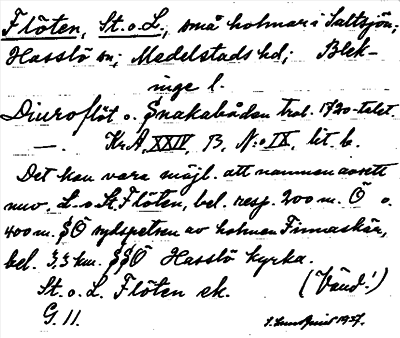 Flöten, St. o. L., små holmar i Saltsjön;
Hasslö sn; Medelstads hd; Blek-
inge l.
Djuroflöt o. Snakabåden trol. 1730-talet.
—. Kr.A. XXIV, B, N:o IX, lit. b.
Det kan vara möjl. att namnen avsett
nuv. L. o. St. Flöten, bel. resp. 200 m. Ö o.
400 m. SÖ sydspetsen av holmen Finnaskär,
bel. 3,5 km. SSÖ Hasslö kyrka.
St. o. L. Flöten ek. (Vänd!)
G. 11.
1937.